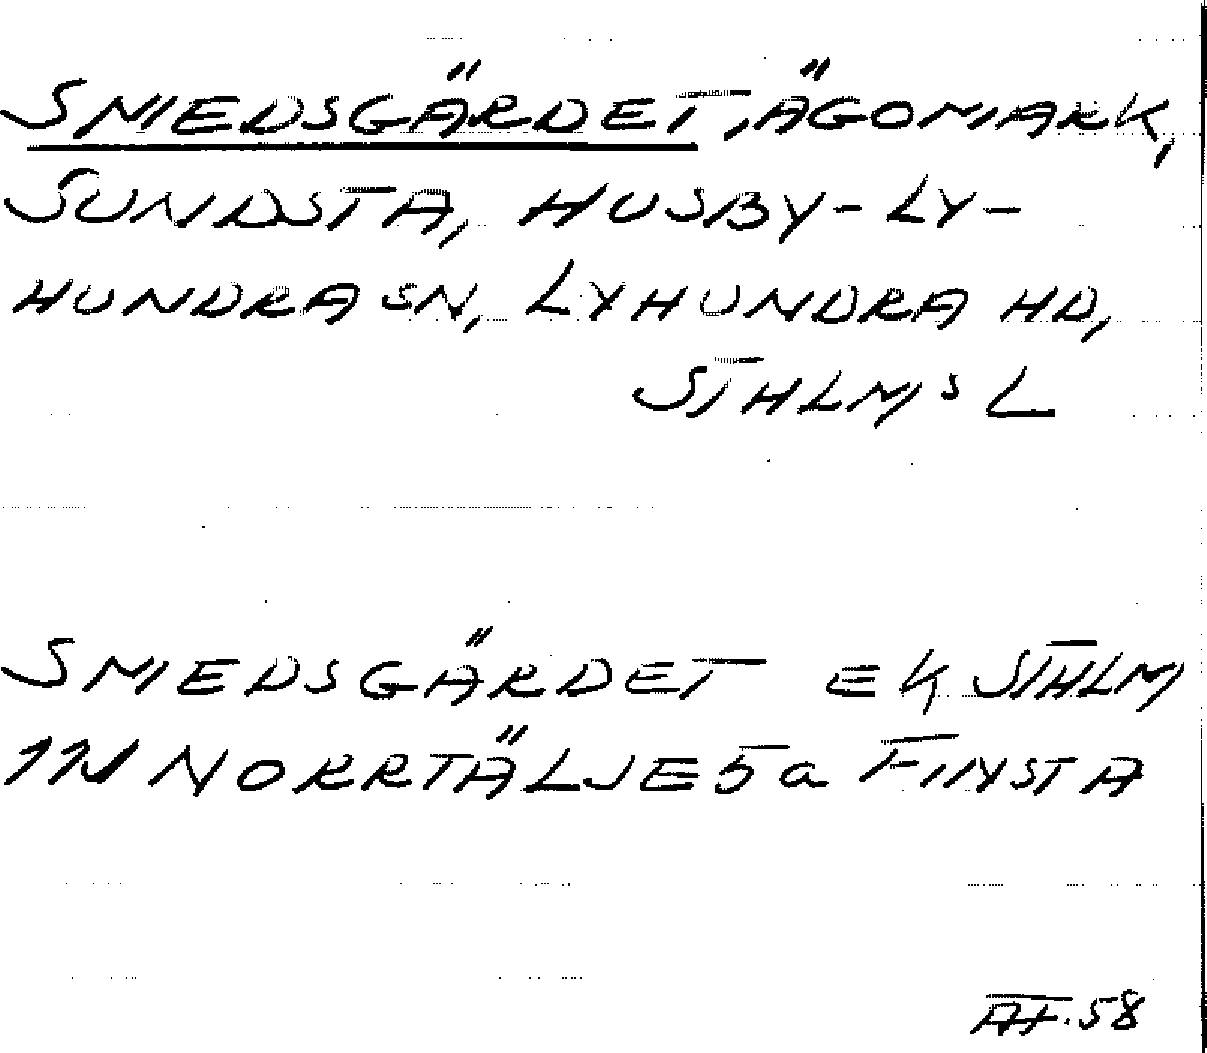 SMEDSGÄRDET, ÄGOMARK,
SUNDSTA, HUSBY-LY-
HUNDRA SN, LYHUNDRA HD,
STHLMS L
SMEDSGÄRDET EK STHLM
11I NORRTÄLJE 5a FINSTA
AF.58